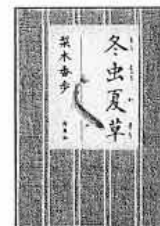 冬虫夏草
梨木香歩